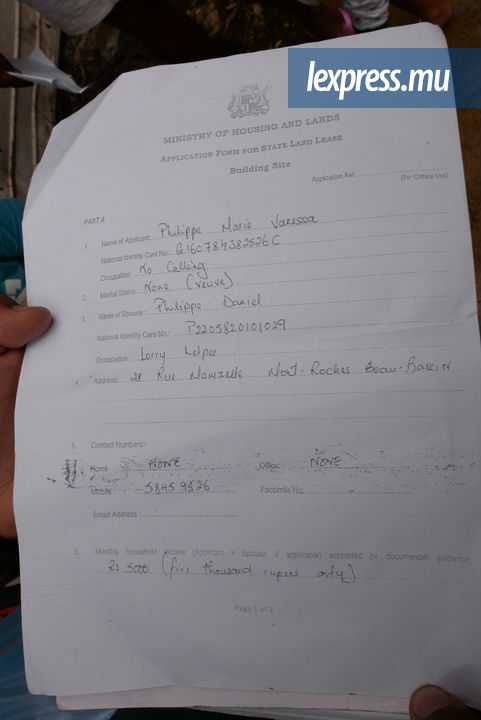 lexpress.mu
MINISTRY OF HOUSING AND LANDS
APPLICATION FORM FOR STATE LAND LEASE
Building Site
Application Ref. 
(For Office Use)
PART A
1. Name of Applicant: Philippe Marie Vanessa
National Identity Card No: G160784382526C
Occupation: No Calling
2. Marital Status: None (veuve)
3. Name of Spouse: Philippe Daniel
National Identity Card No.: P2205820101029
Occupation: Lorry helper
4. Address: 28 Rue Mont-Roches Beau-Bassin
5. Contact Numbers:-
Home : NONE Office: NONE
Mobile : 5845 9526 Facsimile No:
Email Address :
6. Monthly household income (Applicant + Spouse, if applicable) supported by documentary evidence
Rs 5000 (five thousand rupees only)
Page 1 of 2